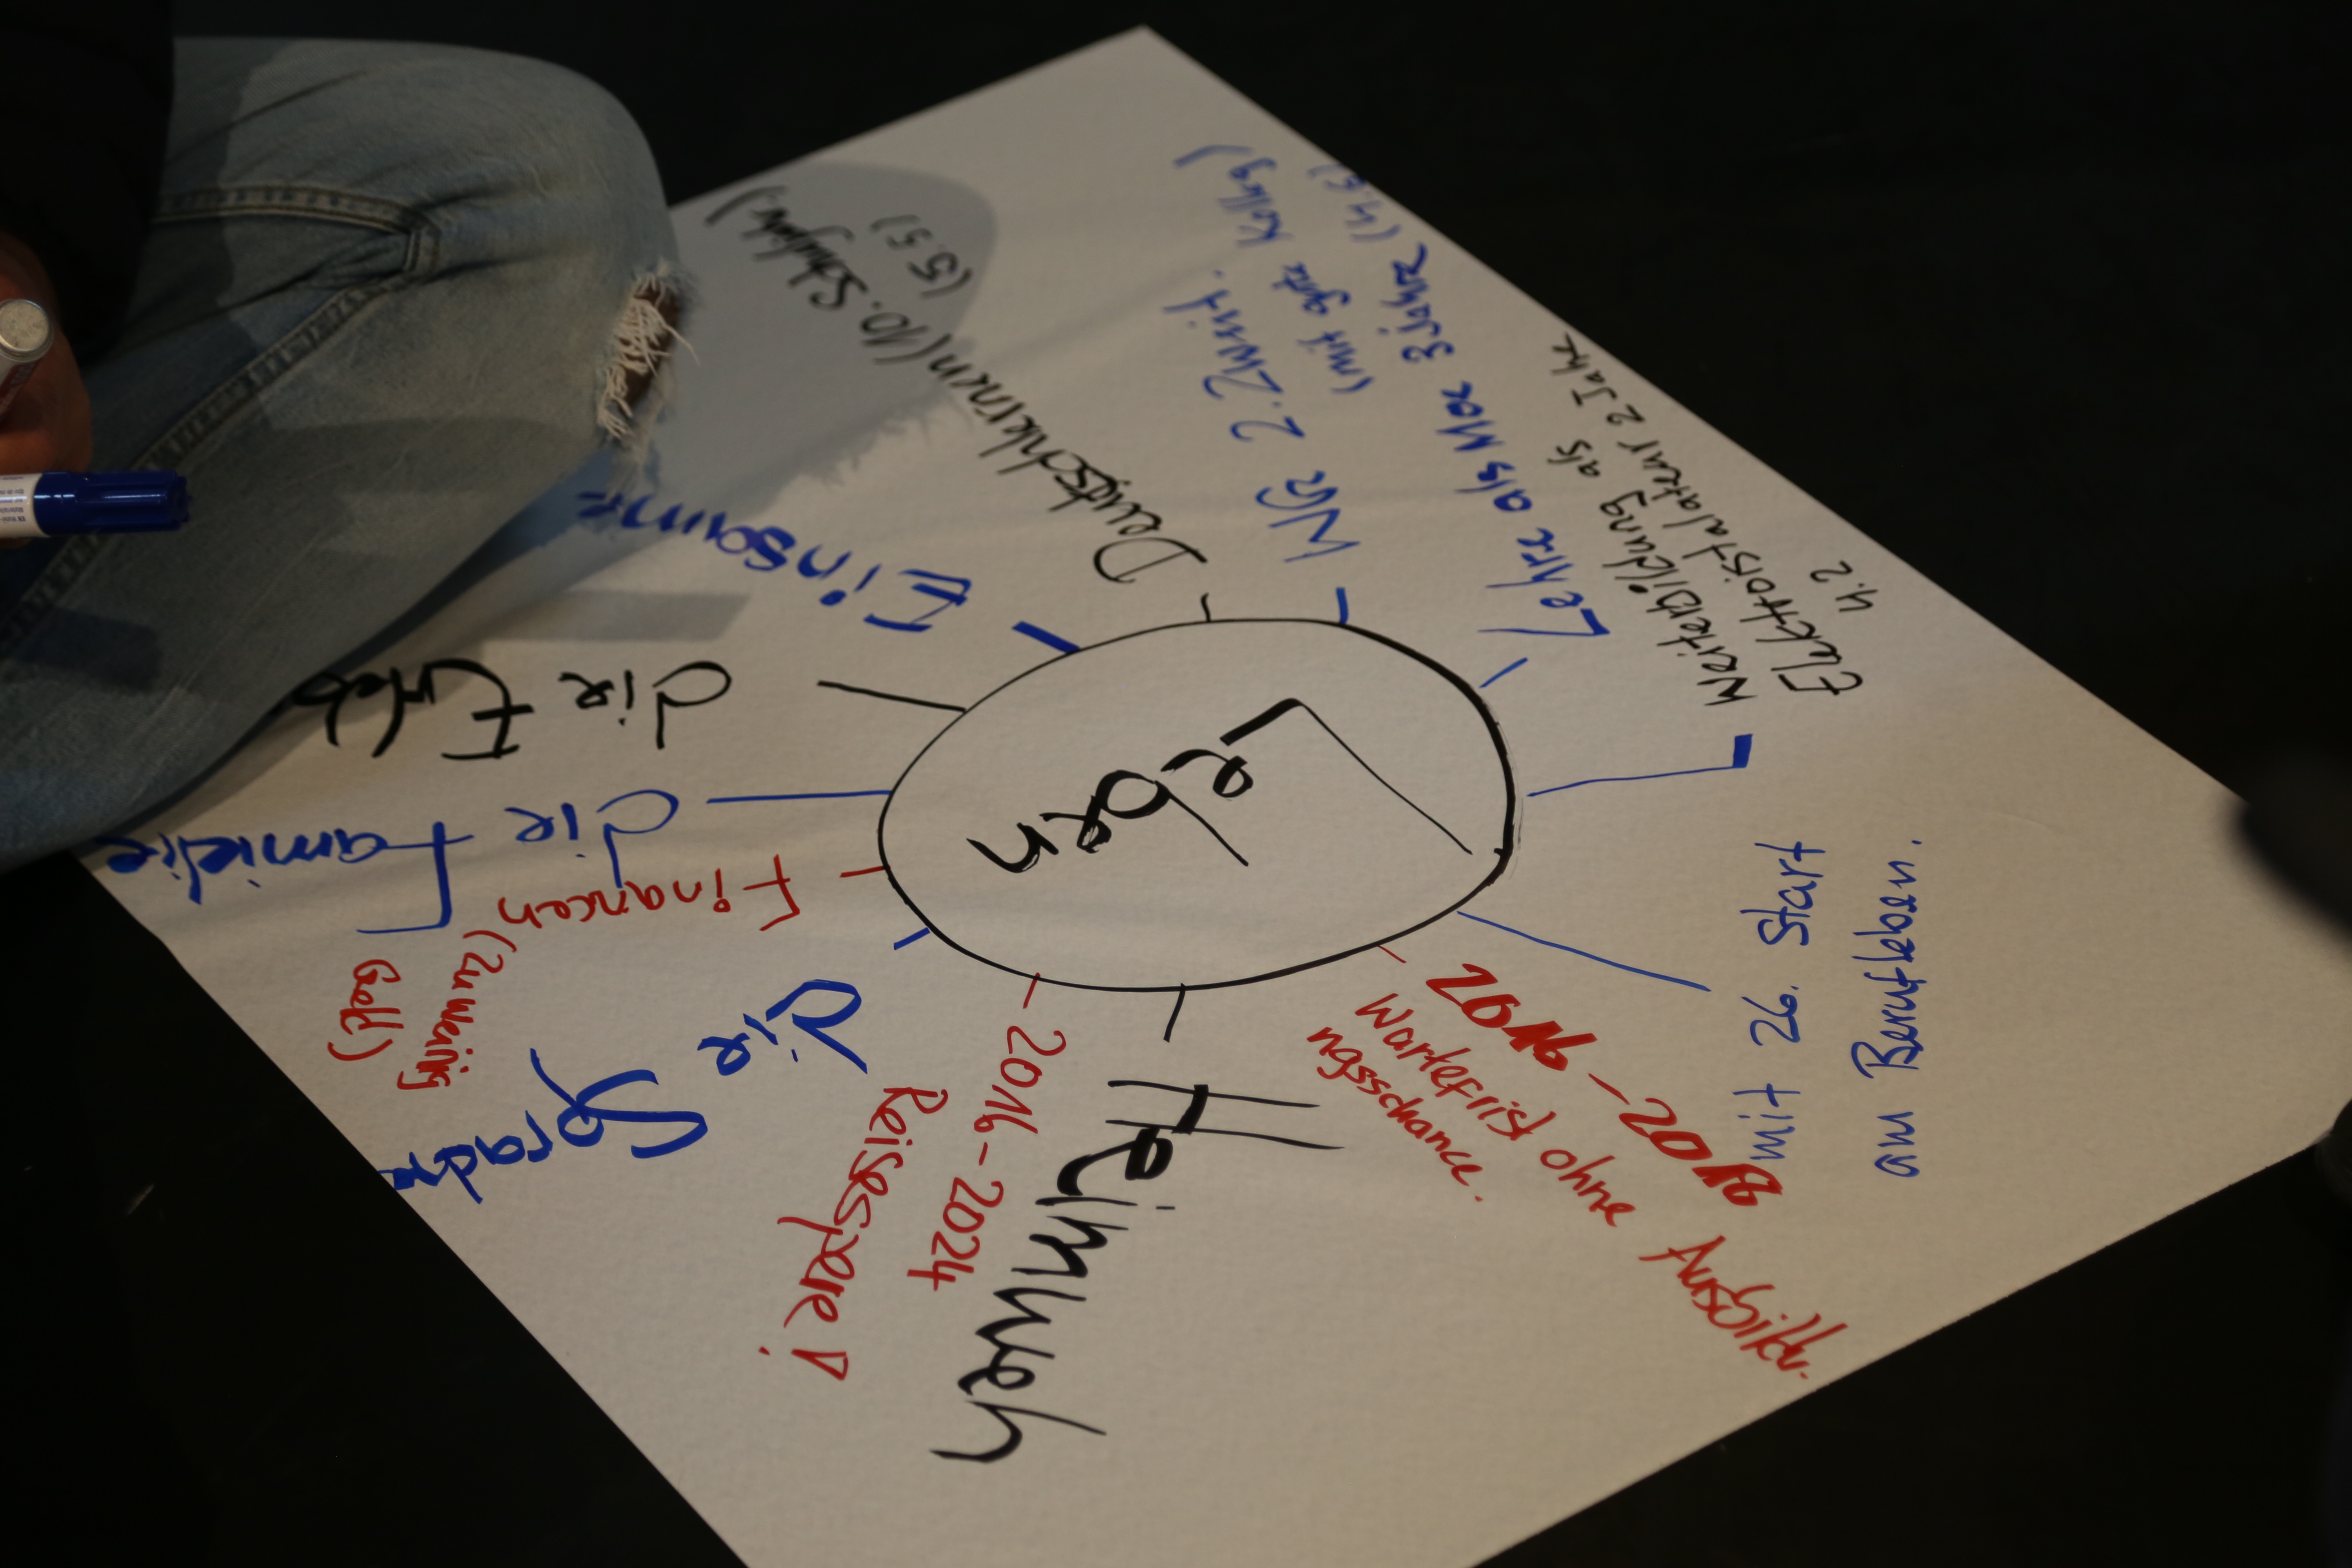 Leben
Deutschlernen (10. Schuljahr.)
(5.5)
WR 2. Zwist.
(mit gute Kolleg)
Lehre als MOE 3 Jahre (4.5)
Weiterbildung als
Elektroistalateur 2 Jahre
4.2
mit 26. Start
am Berufleben.
2016 – 2018
Wartefrist ohne Ausbildu-
ngsschance.
Heimweh
2016-2024
Reisesperre!
Die
Sprache
Financen
(zu wenig
Geld)
die Familie
die Erleb
Einsame